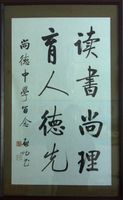 读书尚理
育人德先
尚德中學留念